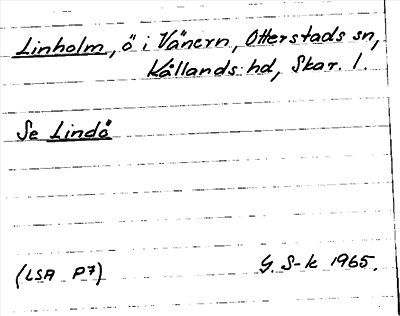 Linholm, ö i Vänern, Otterstads sn,
Kållands hd, Skar. l.
Se Lindö
(LSA P7)
G. S-k 1965.